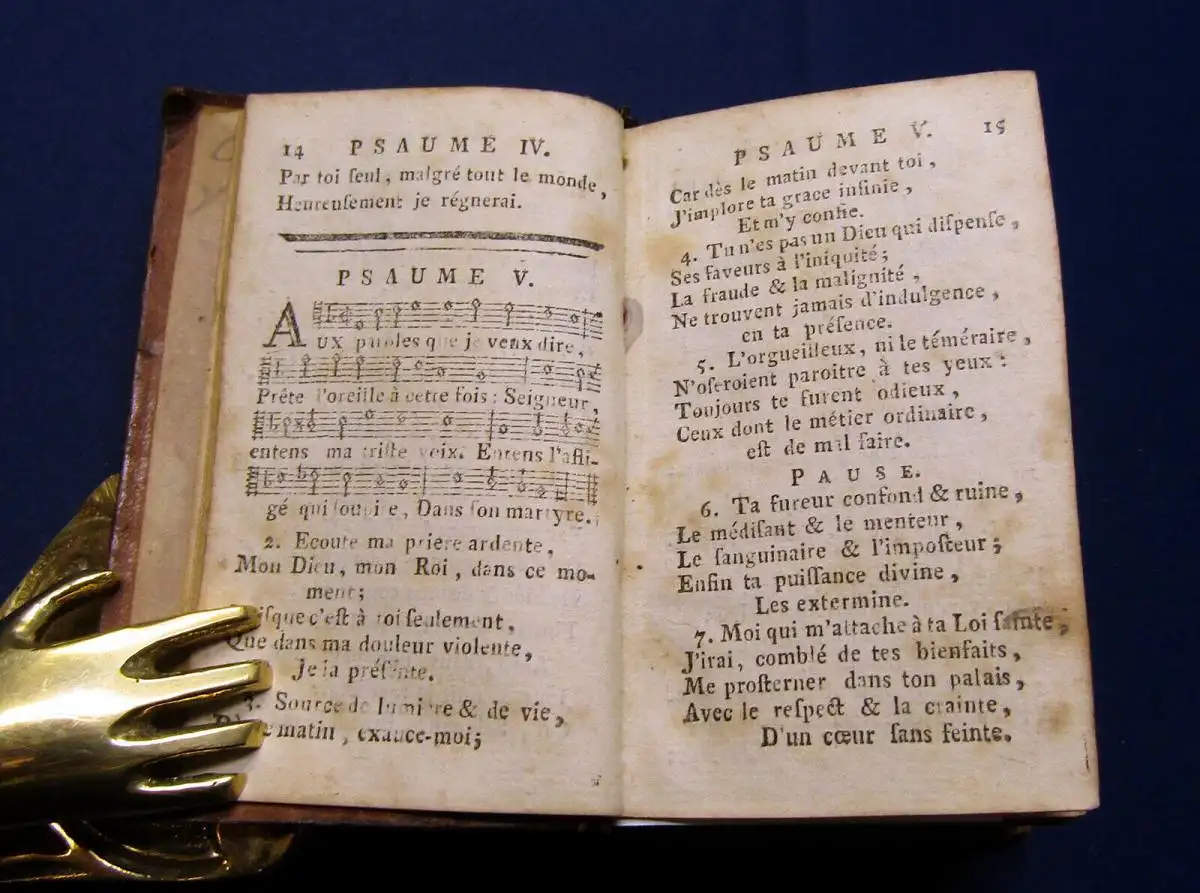 14 PSAUME IV.
Par toi ſeul, malgré tout le monde,
Heureuſement je régnerai.
PSAUME V.
AUX paroles que je veux dire,
Prête l'oreille à cette fois : Seigneur,
entens ma triſte voix. Entens l'affli-
gé qui ſoupire, Dans ſon martyre.
2. Ecoute ma priere ardente,
Mon Dieu, mon Roi, dans ce mo-
ment;
c'eſt à toi ſeulement,
Que dans ma douleur violente,
Je la préſente.
3. Source de lumiere & de vie,
matin, exauce-moi;
PSAUME V. 15
Car dès le matin devant toi,
J'implore ta grace infinie,
Et m'y confie.
4. Tu n'es pas un Dieu qui diſpenſe,
Ses faveurs à l'iniquité;
La fraude & la malignité,
Ne trouvent jamais d'indulgence,
en ta préſence.
5. L'orgueilleux, ni le téméraire,
N'oſeroient paroitre à tes yeux :
Toujours te furent odieux,
Ceux dont le métier ordinaire,
eſt de mal faire.
PAUSE.
6. Ta fureur confond & ruine,
Le médiſant & le menteur,
Le ſanguinaire & l'impoſteur;
Enfin ta puiſſance divine,
Les extermine.
7. Moi qui m'attache à ta Loi ſainte,
J'irai, comblé de tes bienfaits,
Me proſterner dans ton palais,
Avec le reſpect & la crainte,
D'un cœur ſans feinte.